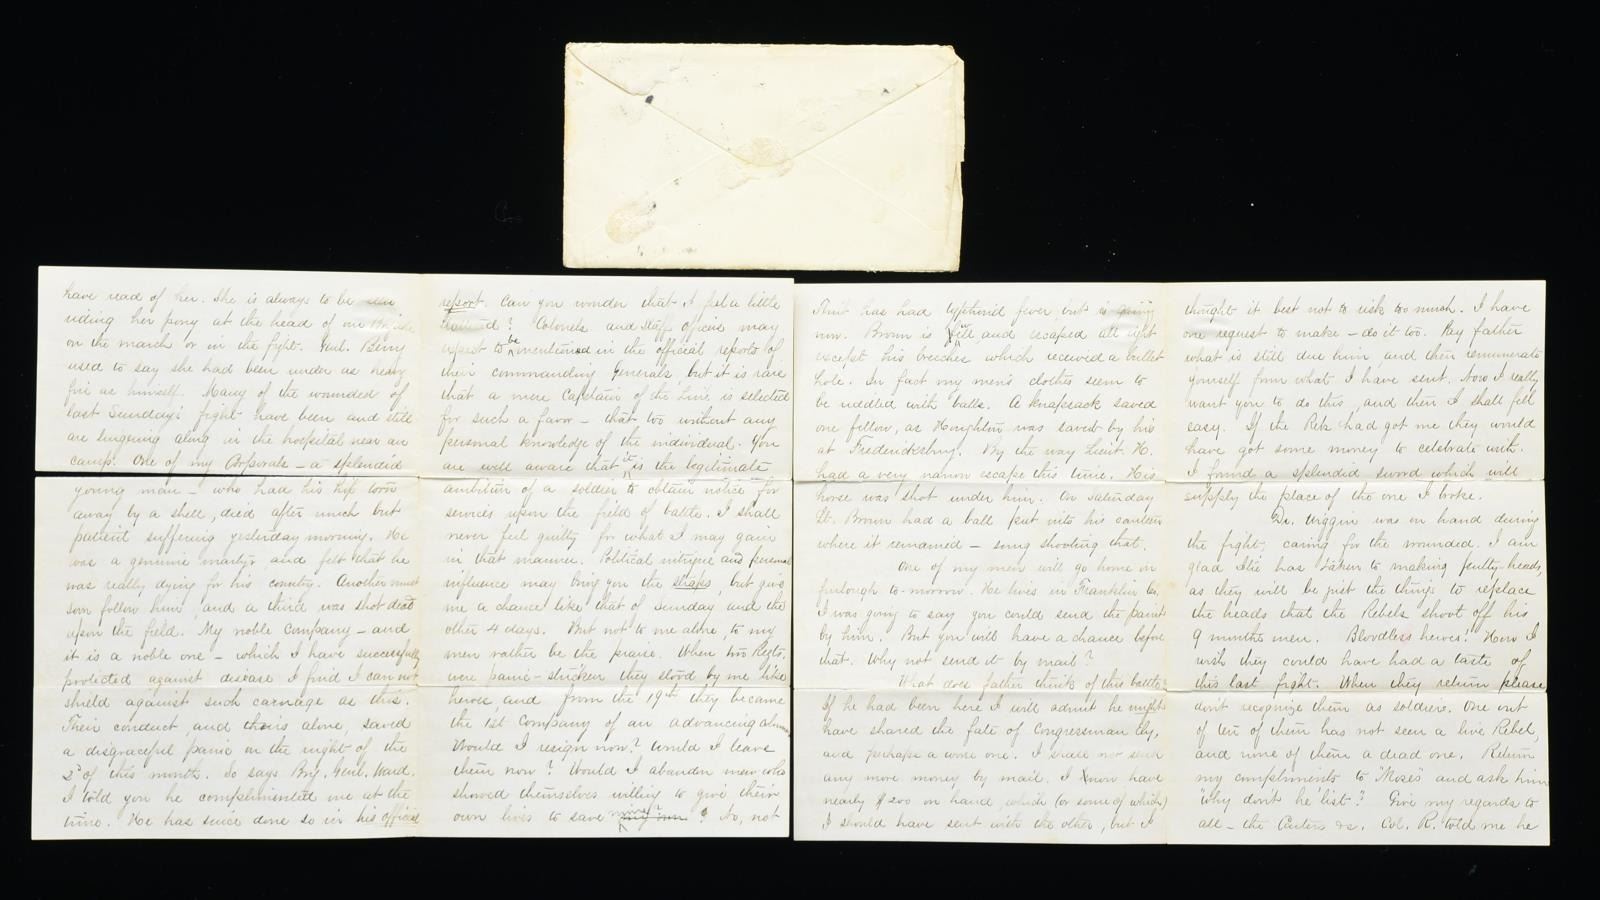 have read of her. She is always to be seen
riding her pony at the head of our Brigade
on the march or in the fight. Genl. Berry
used to say she had been under as heavy
fire as himself. Many of the wounded of
last Sunday's fight have been and still
are lingering along in the hospital near our
camp. One of my Corporals – a splendid
young man – who had his hip torn
away by a shell, died after much but
patient suffering yesterday morning. He
was a genuine martyr and felt that he
was really dying for his country. Another must
soon follow him, and a third was shot dead
upon the field. My noble Company – and
it is a noble one – which I have successfully
protected against disease I find I can not
shield against such carnage as this.
Their conduct, and theirs alone, saved
a disgraceful panic on the night of the
2d of this month. So says Brig. Genl. Ward.
I told you he complimented me at the
time. He has since done so in his official
report. Can you wonder that I feel a little
? Colonels and Staff officers may
expect to be mentioned in the official reports of
their commanding Generals, but it is rare
that a mere Captain of the Line is selected
for such a favor – that too without any
personal knowledge of the individual. You
are well aware that it is the legitimate
ambition of a soldier to obtain notice for
services upon the field of battle. I shall
never feel guilty for what I may gain
in that manner. Political intrigue and personal
influence may bring you the straps, but give
me a chance like that of Sunday and the
other 4 days. But not to me alone, to my
men rather be the praise. When two Regts.
were panic-stricken they stood by me like
heroes, and from the 19th they became
the 1st Company of an advancing
Would I resign now? Would I leave
them now? Would I abandon men who
showed themselves willing to give their
own lives to save mine? No, not
has had typhoid fever but is going
now. Brown is well and escaped all right
except his breeches which received a bullet
hole. In fact my men's clothes seem to
be riddled with balls. A knapsack saved
one fellow, as Houghton was saved by his
at Fredericksburg. By the way Lieut. H.
had a very narrow escape this time. His
horse was shot under him. On Saturday
Lt. Brown had a ball put into his canteen
where it remained – some shooting that.
One of my men will go home on
furlough to-morrow. He lives in Franklin Co.
I was going to say you could send the pants
by him. But you will have a chance before
that. Why not send it by mail?
What does father think of this battle?
If he had been here I will admit he might
have shared the fate of Congressman Ely,
and perhaps a worse one. I shall not send
any more money by mail. I know have
nearly $200 on hand, which (or some of which)
I should have sent with the other, but I
thought it best not to risk too much. I have
one request to make – do it too. Pay father
what is still due him, and then remunerate
yourself from what I have sent. Now I really
want you to do this, and then I shall feel
easy. If the Rebs had got me they would
have got some money to celebrate with.
I found a splendid sword which will
supply the place of the one I broke.
Dr. Wiggin was on hand during
the fight, caring for the wounded. I am
glad has taken to making heads,
as they will be just the things to replace
the heads that the Rebels shoot off his
9 months men. Bloodless heroes! How I
wish they could have had a taste of
this last fight. When they return please
don't recognize them as soldiers. One out
of ten of them has not seen a live Rebel,
and none of them a dead one. Return
my compliments to "Moses" and ask him
"why don't he 'list"? Give my regards to
all – the Carters &c. Col. R. told me he